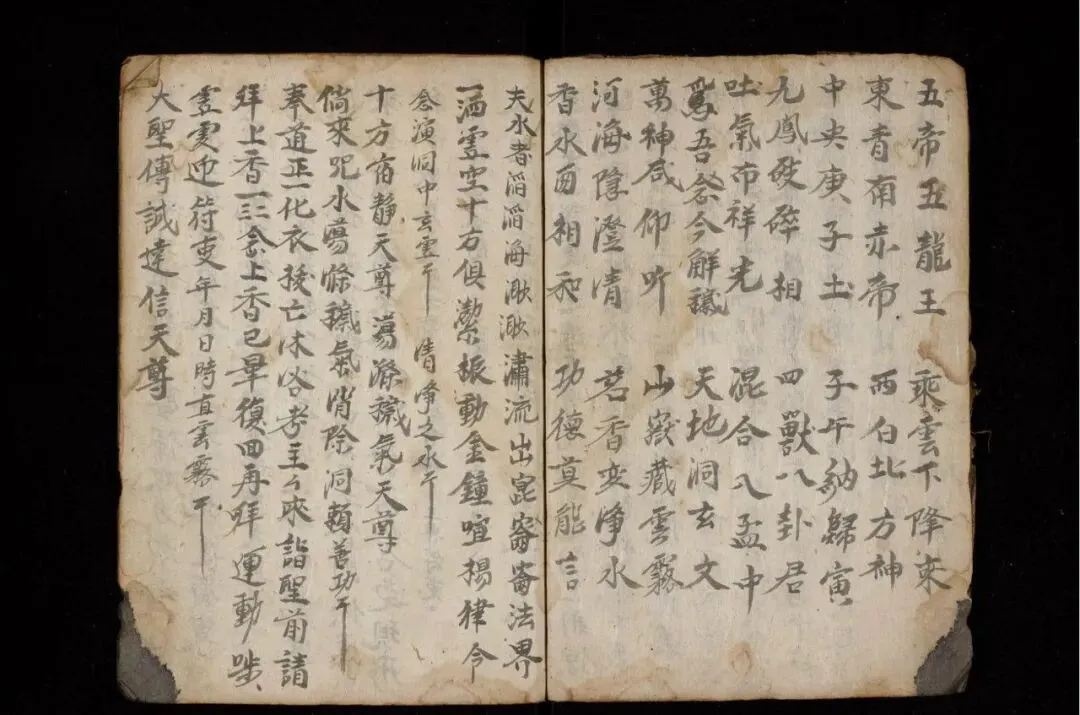 五帝五龍王 乘雲下降来
東青南赤帝 西白北方神
中央庚子土 子午納歸寅
九鳳破碎相 四獸八卦君
吐氣布祥光 混合入盂中
吾今解穢 天地洞玄文
萬神咸仰听 山嶽藏雲霧
河海隐澄清 茗香变净水
香水两相和 功德莫能言
夫水者滔滔海瀜瀜瀟流出崑崙法界
一洒虚空十方俱潔振動金鐘喧揚律令
念演洞中玄虚干 清净之水干
十方肅静天尊蕩滌穢氣天尊
倘来咒水蕩除穢氣消除洞頼善功干
奉道正一化衣接亡沐浴考主々来詣聖前請
拜上香一二三叁上香已畢復回再拜運動
虚雯迎符吏年月日時直雲霧干
大聖傳誠達信天尊